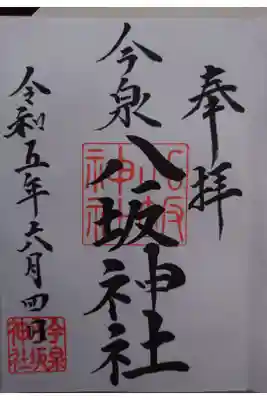 奉拝
今泉
八坂神社
八坂神社
令和五年六月四日
今泉八坂神社